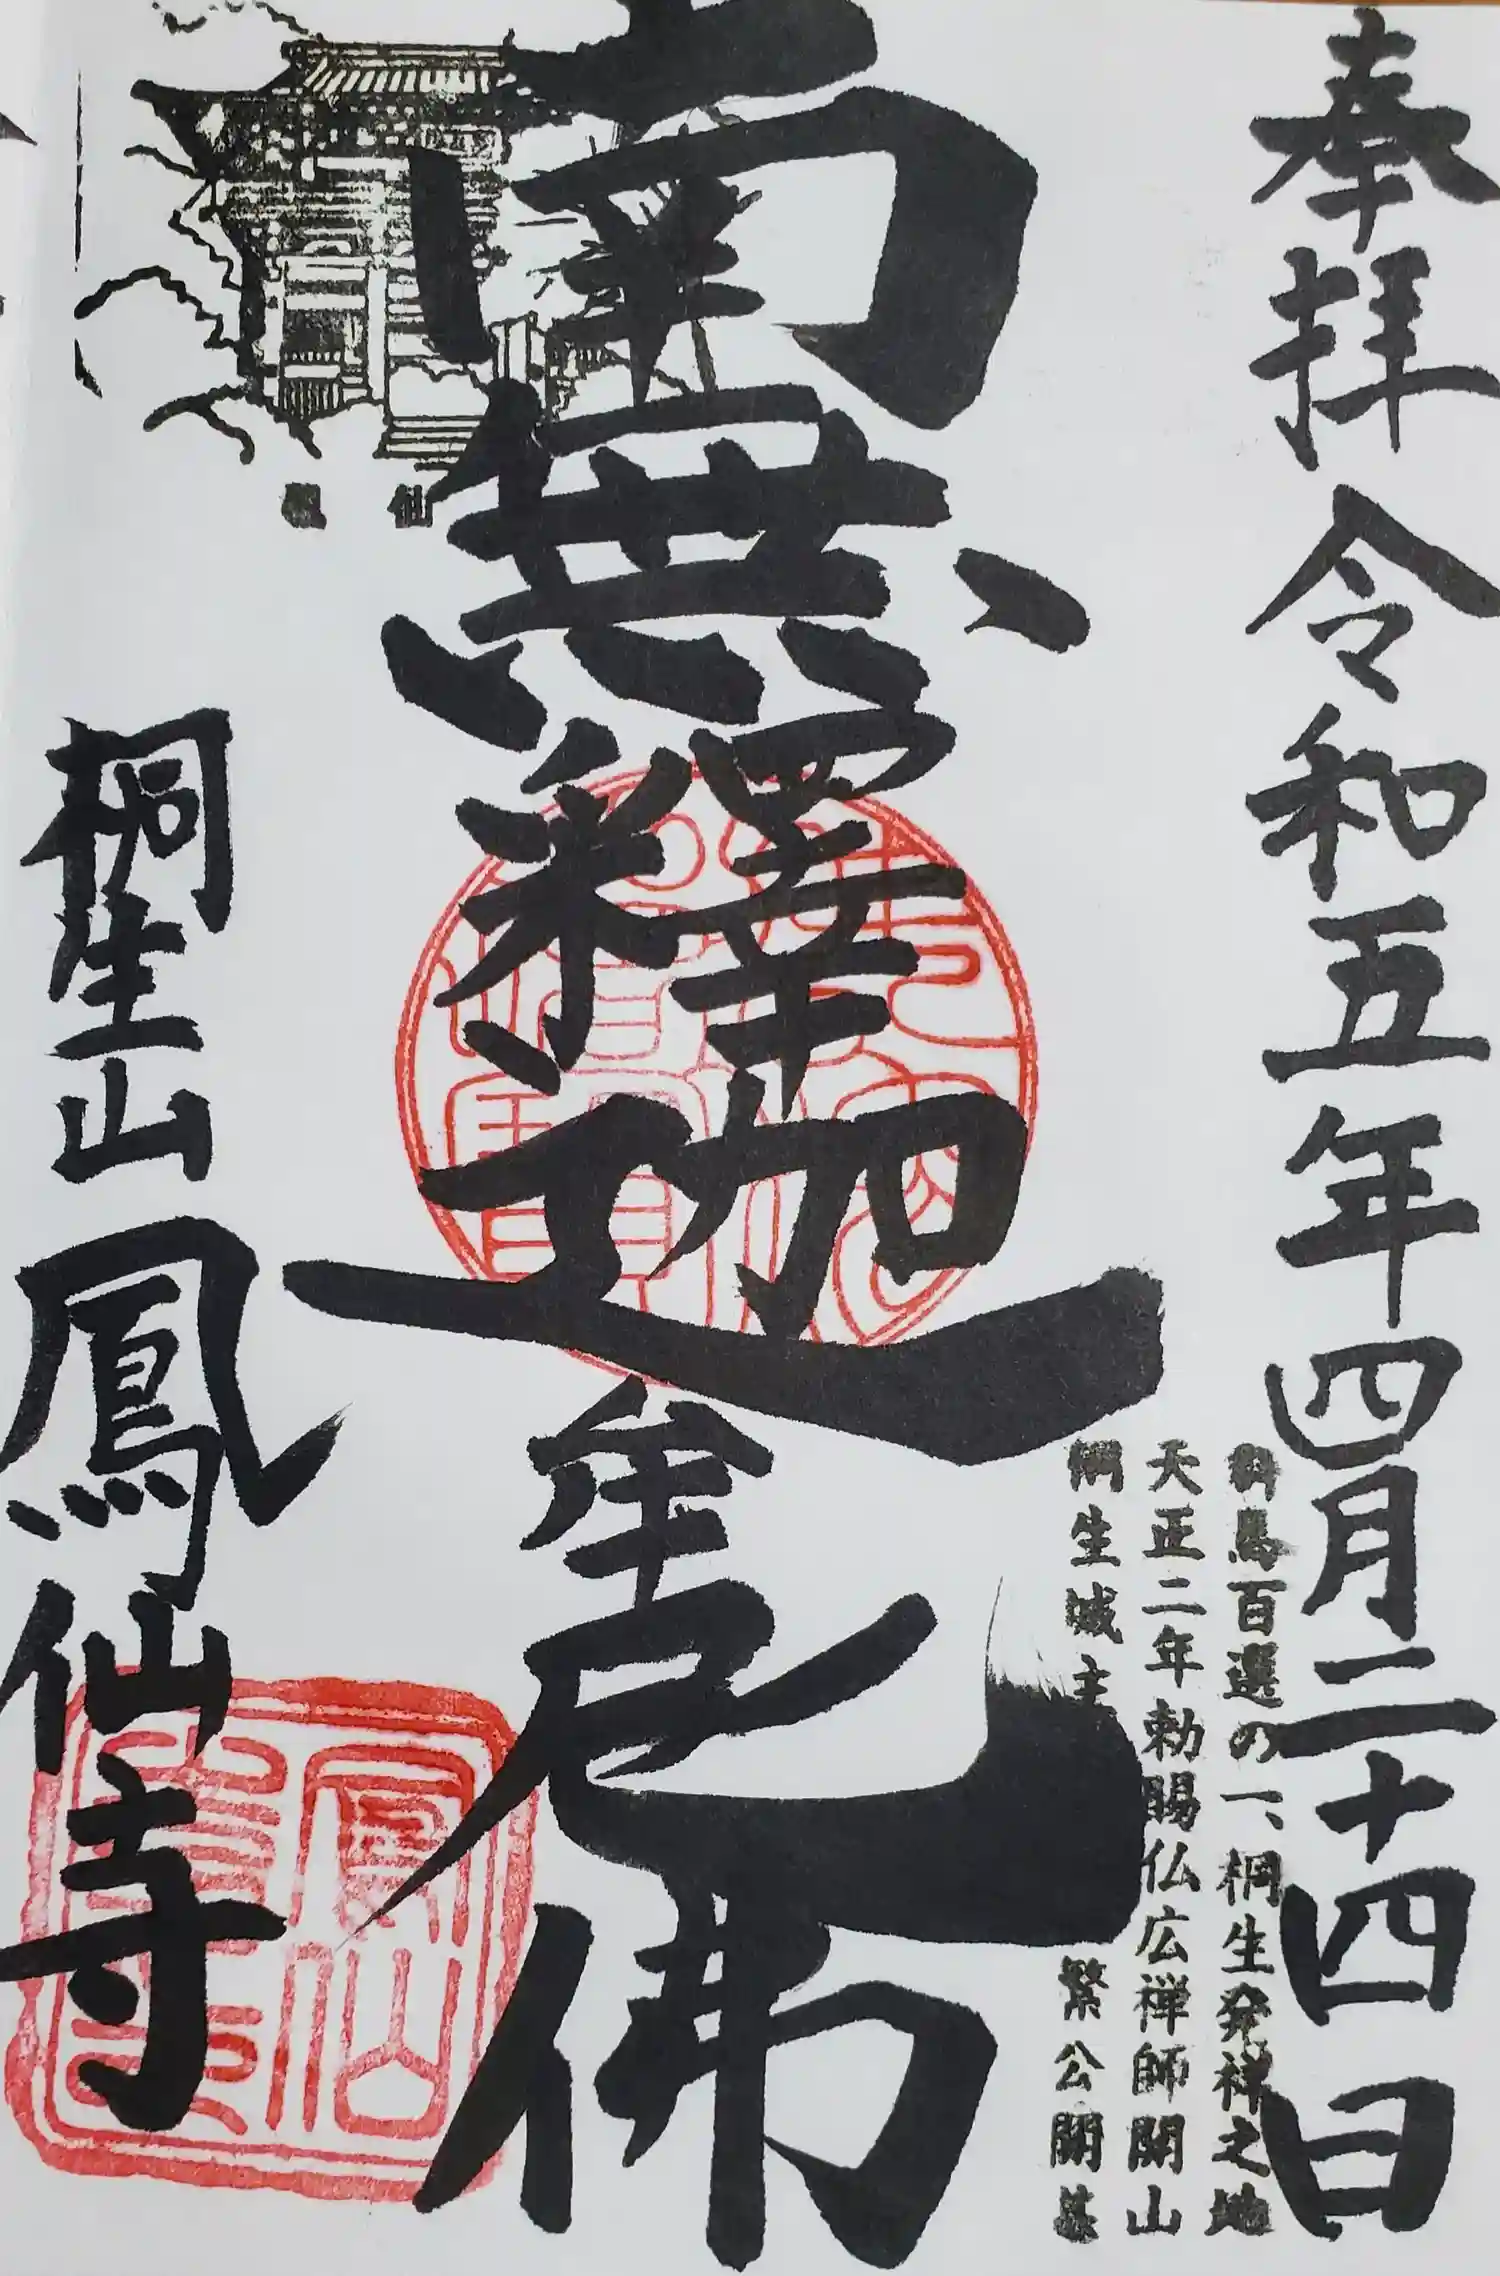 奉拝 令和五年四月二十四日
群馬百選の一、桐生発祥之地
天正二年勅賜仏広禅師開山
桐生城主 繁公開基
南無釋迦牟尼佛
仙
桐生山 鳳仙寺
鳳仙